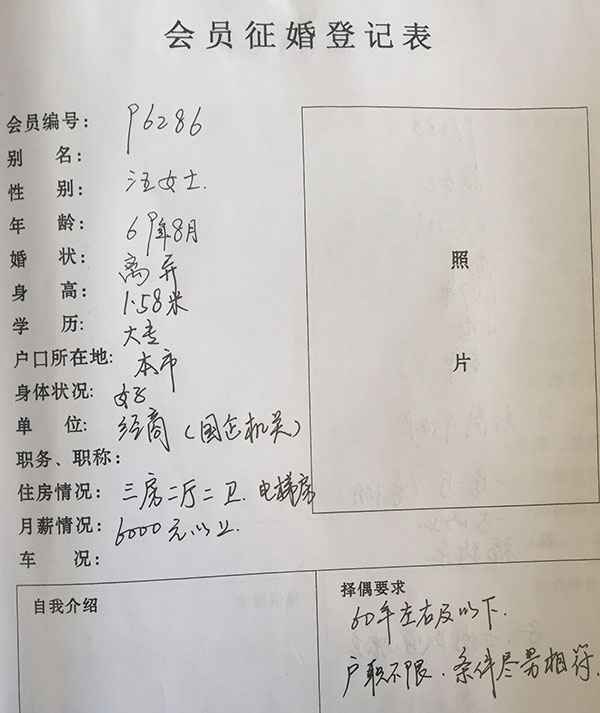 会员征婚登记表
会员编号: P6286
别 名:
性 别: 汪女士.
年 龄: 69年8月
婚 状: 离异
身 高: 1.58米
学 历: 大专
户口所在地: 本市
身体状况: 好
单 位: 经商(国企机关)
职务、职称:
住房情况: 三房二厅二卫.电梯房
月薪情况: 6000元以上.
车 况:
照
片
自我介绍
择偶要求
60年左右及以下.
户职不限.条件尽男相符.